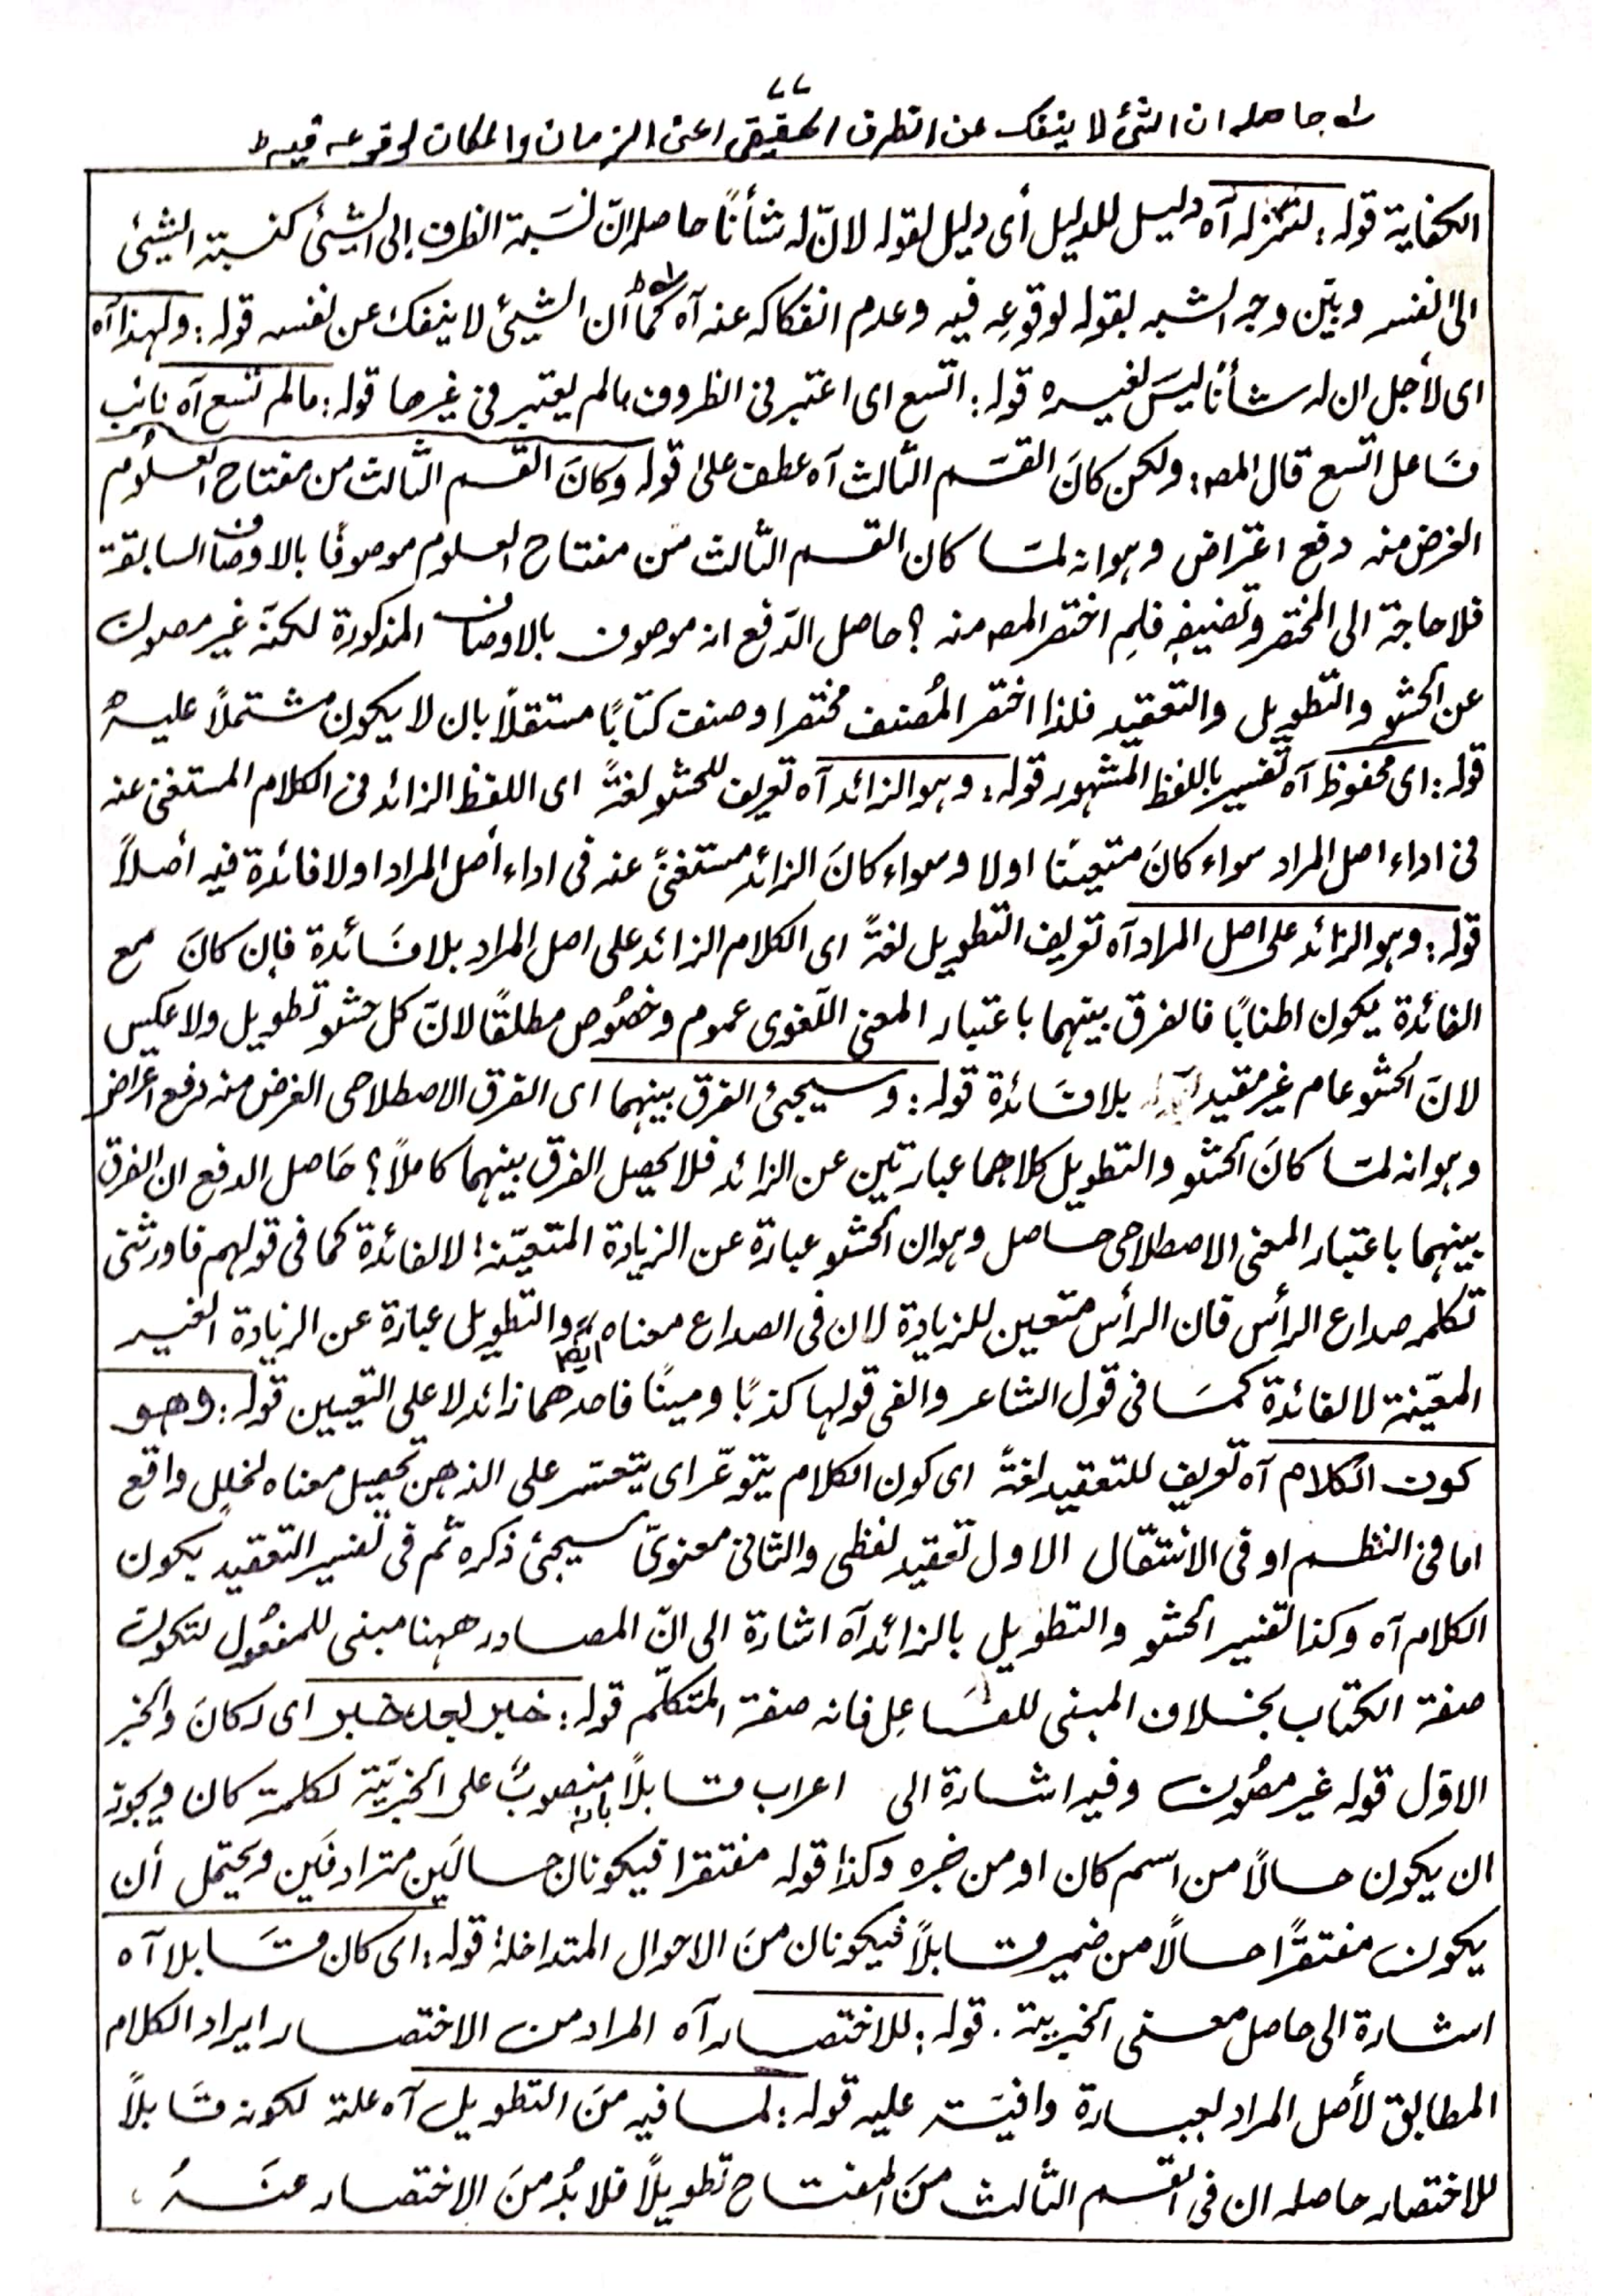 ٧٧
حاصله ان الشئ لا ينفك عن الظرف الحقيقى اعنى الزمان والمكان لوقوعه فيه
الكفاية قوله: لتنزله آه دليل للدليل أى دليل لقوله لانّ له شأنًا حاصله انّ نسَبة الظرف إلى الشئ كنسبة الشيئ
الى نفسه وبيّن وجه الشبه بقوله لوقوعه فيه وعدم انفكاكه عنه آه كما أن الشيئ لا ينفك عن نفسه قوله: ولهذا آه
اى لأجل ان له شأنًا ليسَ لغيره قوله: اتسع اى اعتبر فى الظروف مالم يعتبر فى غيرها قوله: مالم تسع آه نائب
فاعل اتسع قال المصـ: ولكن كانَ القسَم الثالث آه عطف على قوله وكانَ القسم الثّالث من مفتاح العلُوم
الغرض منه دفع اعتراض وهو انه لمّا كان القسم الثّالث من مفتاح العلوم موصوفًا بالاوصاف السابقة
فلا حاجة الى المختصر وتصنيفِه فلِم اختصر المصـ منه ؟ حاصل الدّفع انه موصوف بالاوصاف المذكورة لكنّه غير مصون
عن الحشو والتطويل والتعقيد فلذا اختصر المُصنف مختصرا وصنف كتابًا مستقلًا بان لا يكون مشتملًا عليهُ
قوله: اى محفوظ آه تفسير باللفظ المشهور قوله: وهو الزائد آه تعريف للحشو لغةً اى اللفظ الزائد فى الكلام المستغنى عنه
فى اداء اصل المراد سواء كانَ متعينًا اولا وسواء كانَ الزائد مستغنىً عنه فى اداء أصل المراد او لا فائدة فيه أصلًا
قوله: وهو الزائد على اصل المراد آه تعريف التطويل لغةً اى الكلام الزائد على اصل المراد بلا فائدة فإن كانَ مع
الفائدة يكون اطنابًا فالفرق بينهما باعتبار المعنى اللّغوى عموم وخصُوص مطلقًا لانّ كل حشو تطويل ولا عكس
لانّ الحشو عام غير مقيد بلا فائدة قوله: وسيجئ الفرق بينهما اى الفرق الاصطلاحى الغرض منه دفع اعتراض
وهو انه لمّا كانَ الحشو والتطويل كلاهما عبارتين عن الزائد فلا يحصل الفرق بينهما كاملًا؟ حَاصل الدفع ان الفرق
بينهما باعتبار المعنى الاصطلاحى حاصل وهو ان الحشو عبارة عن الزيادة المتعيّنة لا لفائدة كما فى قولهم فاورثنى
تكلمه صداع الرأس فان الرأس متعين للزيادة لان فى الصداع معناه ايضًا والتطويل عبارة عن الزيادة الغير
المعيّنة لا لفائدة كمَا فى قول الشاعر والفى قولها كذبًا ومينًا فاحدهما زائد لا على التعيين قوله: وهو
كون الكلام آه تعريف للتعقيد لغةً اى كون الكلام يتوعّر اى يتعسّر على الذهن تحصيل معناه لخلل واقع
اما فى النظم او فى الانتقال الاول تعقيد لفظى والثانى معنوىّ سيجئ ذكره ثم فى تفسير التعقيد بكون
الكلام آه وكذا تفسير الحشو والتطويل بالزائد آه اشارة الى انّ المصادر ههنا مبنى للمفعُول لتكون
صفة الكتاب بخلاف المبنى للفَاعِل فانه صفة المتكلّم قوله: خبر بعد خبر اى لكانَ والخبر
الاوّل قوله غير مصُون وفيه اشارة الى اعراب قابلًا بانه منصوبٌ على الخبريّة لكلمة كان ويجوز
ان يكون حالًا من اسم كان او من خبره وكذا قوله مفتقرا فيكونان حالَين مترادفَين ويحتمل أن
يكون مفتقرًا حالًا من ضمير قابلًا فيكونان منَ الاحوال المتداخلة قوله: اى كان قَابلا آه
اشارة الى حاصل معنى الخبرية. قوله: للاختصار آه المراد من الاختصار ايراد الكلام
المطابق لأصل المراد بعبارة وافيَة عليه قوله: لما فيه منَ التطويل آه علة لكونه قَابلًا
للاختصار حاصله ان فى القسم الثالث منَ المفتاح تطويلًا فلا بُدّ منَ الاختصار عنَهُ